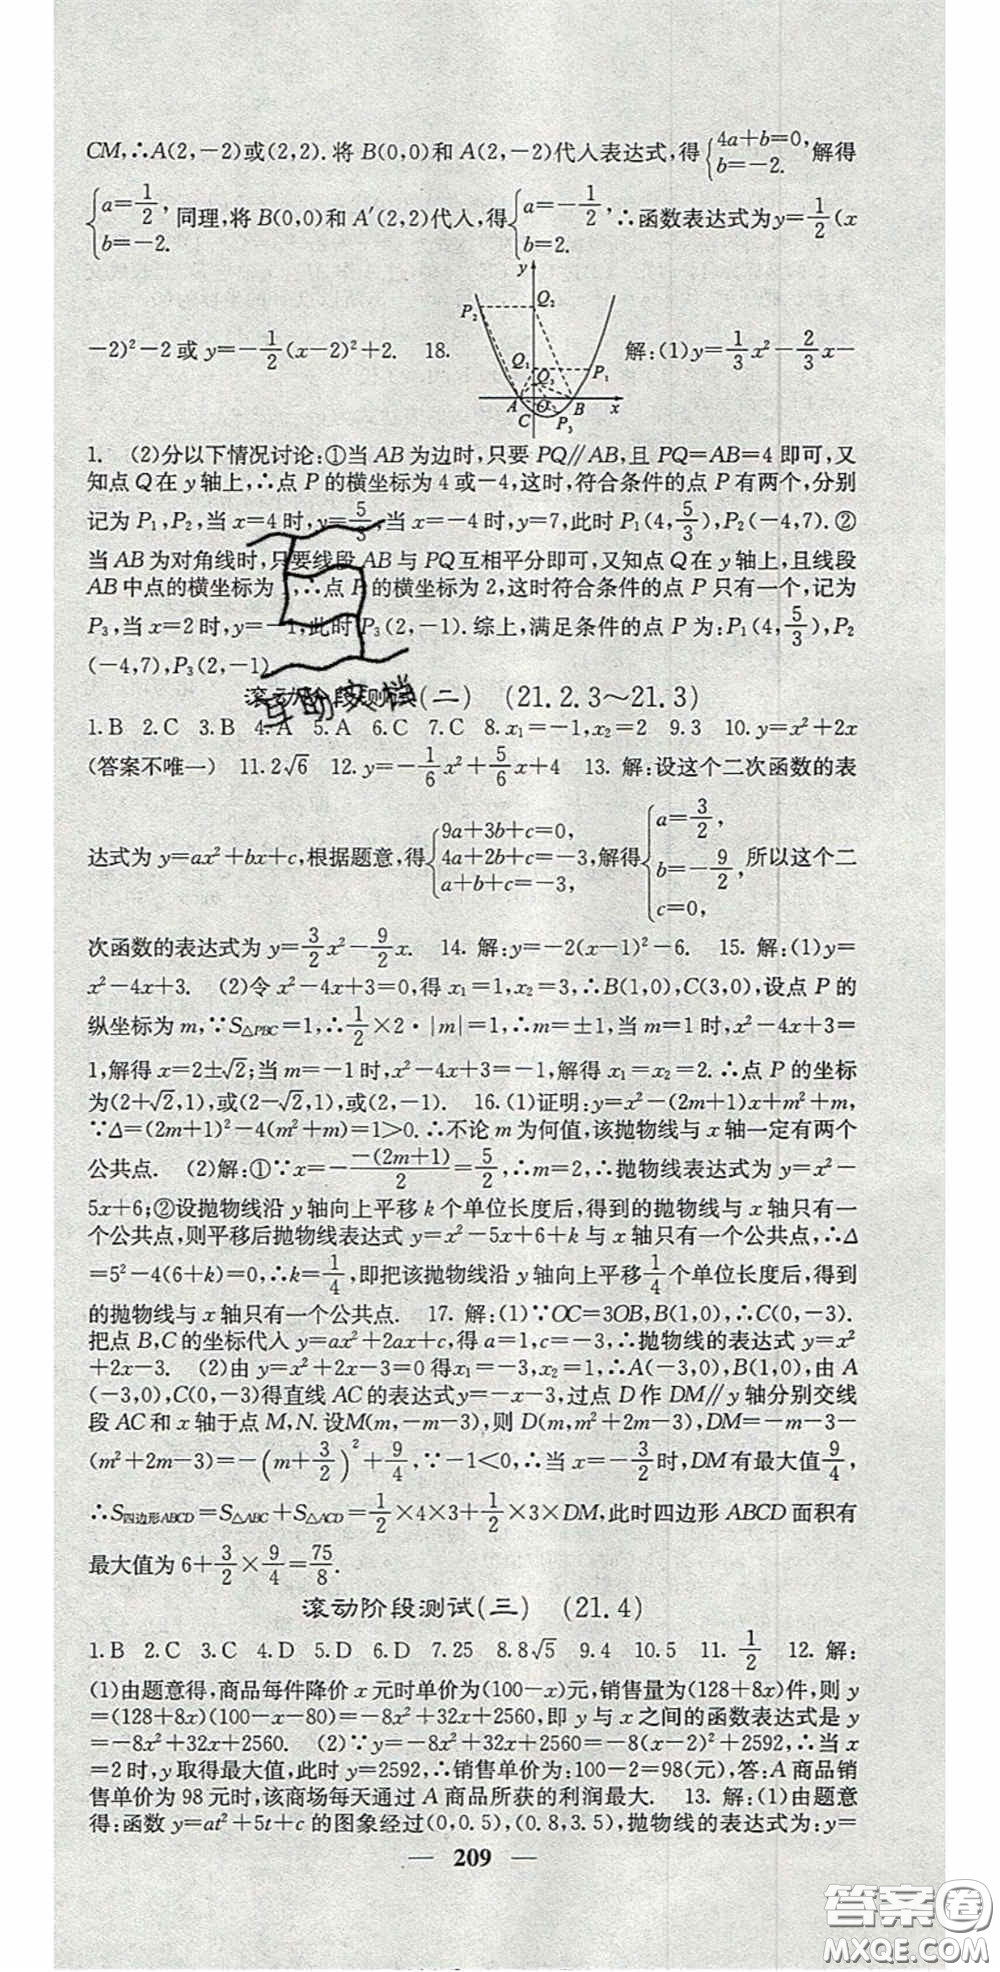 CM,∴A(2,-2)或(2,2).将B(0,0)和A(2,-2)代入表达式,得{4a+b=0, b=-2. 解得
{a=1/2, b=-2. 同理,将B(0,0)和A′(2,2)代入,得{a=-1/2, b=2. ∴函数表达式为y=1/2(x
-2)²-2或y=-1/2(x-2)²+2. 18. 解:(1)y=1/3x²-2/3x-
y
P₂ Q₂
Q₁ P₁
Q₃
A O B x
C P₃
1. (2)分以下情况讨论:①当AB为边时,只要PQ∥AB,且PQ=AB=4即可,又
知点Q在y轴上,∴点P的横坐标为4或-4,这时,符合条件的点P有两个,分别
记为P₁,P₂,当x=4时,y=5/3,当x=-4时,y=7,此时P₁(4,5/3),P₂(-4,7).②
当AB为对角线时,只要线段AB与PQ互相平分即可,又知点Q在y轴上,且线段
AB中点的横坐标为 ,∴点P的横坐标为2,这时符合条件的点P只有一个,记为
P₃,当x=2时,y=-1,此时P₃(2,-1).综上,满足条件的点P为:P₁(4,5/3),P₂
(-4,7),P₃(2,-1)
滚动阶段测试(二) (21.2.3~21.3)
1.B 2.C 3.B 4.A 5.A 6.C 7.C 8.x₁=-1,x₂=2 9.3 10.y=x²+2x
(答案不唯一) 11.2√6 12.y=-1/6x²+5/6x+4 13. 解:设这个二次函数的表
达式为y=ax²+bx+c,根据题意,得{9a+3b+c=0, 4a+2b+c=-3, a+b+c=-3, 解得{a=3/2, b=-9/2, c=0, 所以这个二
次函数的表达式为y=3/2x²-9/2x. 14. 解:y=-2(x-1)²-6. 15. 解:(1)y=
x²-4x+3. (2)令x²-4x+3=0,得x₁=1,x₂=3,∴B(1,0),C(3,0),设点P的
纵坐标为m,∵S△PBC=1,∴1/2×2·|m|=1,∴m=±1,当m=1时,x²-4x+3=
1,解得x=2±√2;当m=-1时,x²-4x+3=-1,解得x₁=x₂=2.∴点P的坐标
为(2+√2,1),或(2-√2,1),或(2,-1). 16.(1)证明:y=x²-(2m+1)x+m²+m,
∵Δ=(2m+1)²-4(m²+m)=1>0.∴不论m为何值,该抛物线与x轴一定有两个
公共点. (2)解:①∵x=-(-(2m+1))/2=5/2,∴m=2,∴抛物线表达式为y=x²-
5x+6;②设抛物线沿y轴向上平移k个单位长度后,得到的抛物线与x轴只有一
个公共点,则平移后抛物线表达式y=x²-5x+6+k与x轴只有一个公共点,∴Δ
=5²-4(6+k)=0,∴k=1/4,即把该抛物线沿y轴向上平移1/4个单位长度后,得到
的抛物线与x轴只有一个公共点. 17. 解:(1)∵OC=3OB,B(1,0),∴C(0,-3).
把点B,C的坐标代入y=ax²+2ax+c,得a=1,c=-3,∴抛物线的表达式y=x²
+2x-3. (2)由y=x²+2x-3=0得x₁=-3,x₂=1,∴A(-3,0),B(1,0),由A
(-3,0),C(0,-3)得直线AC的表达式y=-x-3,过点D作DM∥y轴分别交线
段AC和x轴于点M,N.设M(m,-m-3),则D(m,m²+2m-3),DM=-m-3-
(m²+2m-3)=-(m+3/2)²+9/4,∵-1<0,∴当x=-3/2时,DM有最大值9/4,
∴S四边形ABCD=S△ABC+S△ACD=1/2×4×3+1/2×3×DM,此时四边形ABCD面积有
最大值为6+3/2×9/4=75/8.
滚动阶段测试(三) (21.4)
1.B 2.C 3.C 4.D 5.D 6.D 7.25 8.8√5 9.4 10.5 11.1/2 12. 解:
(1)由题意得,商品每件降价x元时单价为(100-x)元,销售量为(128+8x)件,则y
=(128+8x)(100-x-80)=-8x²+32x+2560,即y与x之间的函数表达式是y
=-8x²+32x+2560. (2)∵y=-8x²+32x+2560=-8(x-2)²+2592,∴当x
=2时,y取得最大值,此时y=2592,∴销售单价为:100-2=98(元),答:A商品销
售单价为98元时,该商场每天通过A商品所获的利润最大. 13. 解:(1)由题意
得:函数y=at²+5t+c的图象经过(0,0.5),(0.8,3.5),抛物线的表达式为:y=
— 209 —
互助文档
答案圈
MXQE.COM